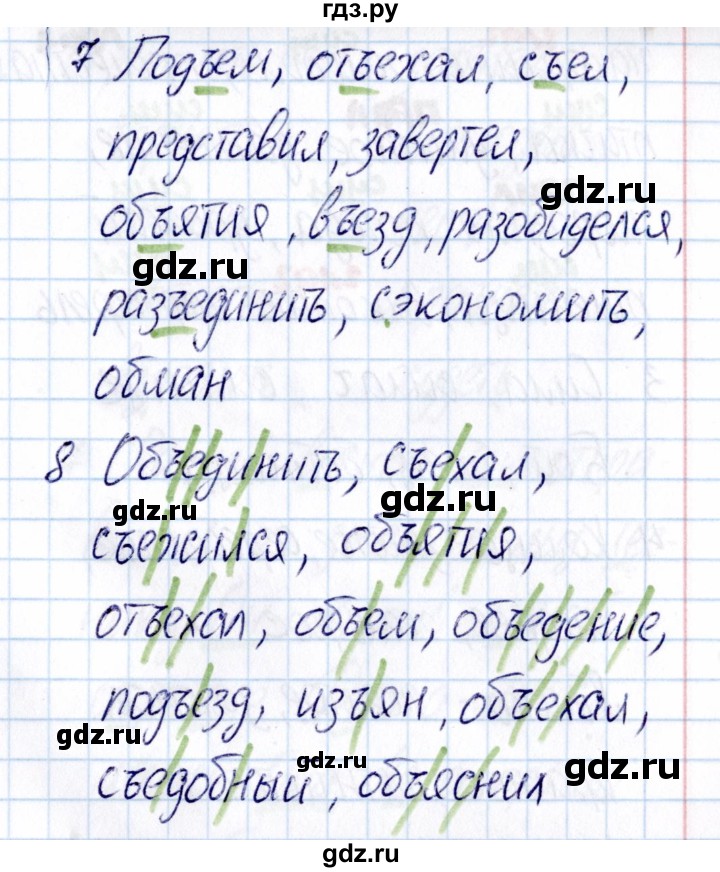 гдз.ру
7 Подъем, отъехал, съел,
представил, завертел,
gdz.ru
объятия, въезд, разобиделся,
gdz.ru
разъединить, сэкономить,
обман
8 Объединить, съехал,
gdz.ru
gdz.ru
съежился, объятия,
отъехал, объем, объедение,
подъезд, изъян, объехал,
gdz.ru
gdz.ru
съедобный, объяснил
gdz.ru